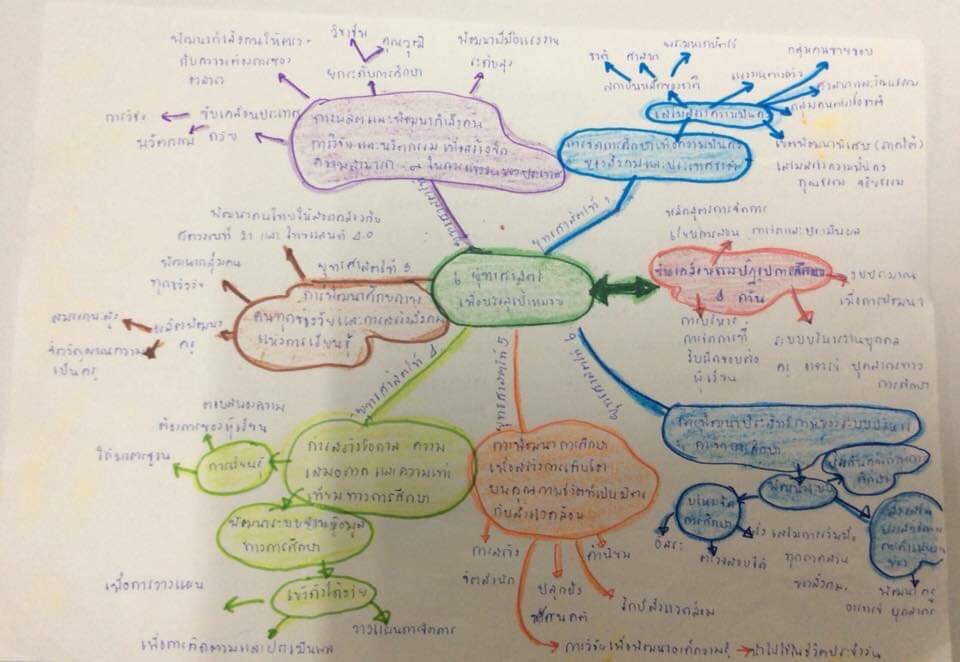 พัฒนากำลังคนให้ตรง
กับความต้องการของ
ตลาด
วิชาชีพ
คุณวุฒิ
ยกระดับการศึกษา
พัฒนาฝีมือแรงงาน
ระดับสูง
การวิจัย
ขับเคลื่อนประเทศ
นวัตกรรม
การผลิตและพัฒนากำลังคน
การวิจัย และนวัตกรรม เพื่อสร้างขีด
ความสามารถ
ในการแข่งขันของประเทศ
ยุทธศาสตร์ที่ 1
ชาติ
ศาสนา
พระมหากษัตริย์
สถาบันหลักของชาติ
เสริมสร้างความมั่นคง
กลุ่มคนชายขอบ
แรงงานต่างด้าว
เขตพัฒนาพิเศษ (ภาคใต้)
เสริมสร้างความมั่นคง
คุณธรรม จริยธรรม
การจัดการศึกษาเพื่อความมั่นคง
ของสังคมและประเทศชาติ
พัฒนาคนไทยให้สอดคล้องกับ
ศตวรรษที่ 21 และ ไทยแลนด์ 4.0
ยุทธศาสตร์ที่ 3
พัฒนากลุ่มคน
ทุกช่วงวัย
การพัฒนาศักยภาพ
คนทุกช่วงวัย และการสร้างสังคม
แห่งการเรียนรู้
ครู
จิตวิญญาณความ
เป็นครู
6 ยุทธศาสตร์
เพื่อบรรลุเป้าหมาย
หลักสูตรการจัดการ
เรียนการสอน
การวัดและประเมินผล
ขับเคลื่อนการปฏิรูปการศึกษา
4 ด้าน
งบประมาณ
เพื่อการพัฒนา
การบริหาร
การจัดการที่
รับผิดชอบต่อ
ผู้เรียน
ระบบบริหารงานบุคคล
ครู อาจารย์ บุคลากรทาง
การศึกษา
ยุทธศาสตร์ที่ 4
ตอบสนองความ
ต้องการของผู้เรียน
การเรียนรู้
การสร้างโอกาส ความ
เสมอภาค และความเท่า
เทียมทางการศึกษา
พัฒนาระบบฐานข้อมูล
ทางการศึกษา
เข้าถึงได้ง่าย
เพื่อการวางแผน
วางแผนการจัดการ
เพื่อการติดตามและประเมินผล
ยุทธศาสตร์ที่ 5
การพัฒนาการศึกษา
เพื่อสร้างการเติบโต
บนคุณภาพชีวิตที่เป็นมิตร
กับสิ่งแวดล้อม
การสร้าง
จิตสำนึก
ปลูกฝัง
ทัศนคติ
ค่านิยม
รักษ์สิ่งแวดล้อม
การวิจัยเพื่อพัฒนาองค์ความรู้
นำไปใช้ในชีวิตประจำวัน
ยุทธศาสตร์ที่ 6
การพัฒนาประสิทธิภาพของระบบบริหาร
จัดการศึกษา
พัฒนาระบบ
บริหารจัด
การศึกษา
อิสระ
ตรวจสอบได้
ส่งเสริมการร่วมมือ
ทุกภาคส่วน
ของสังคม
พัฒนาครู
อาจารย์ บุคลากร